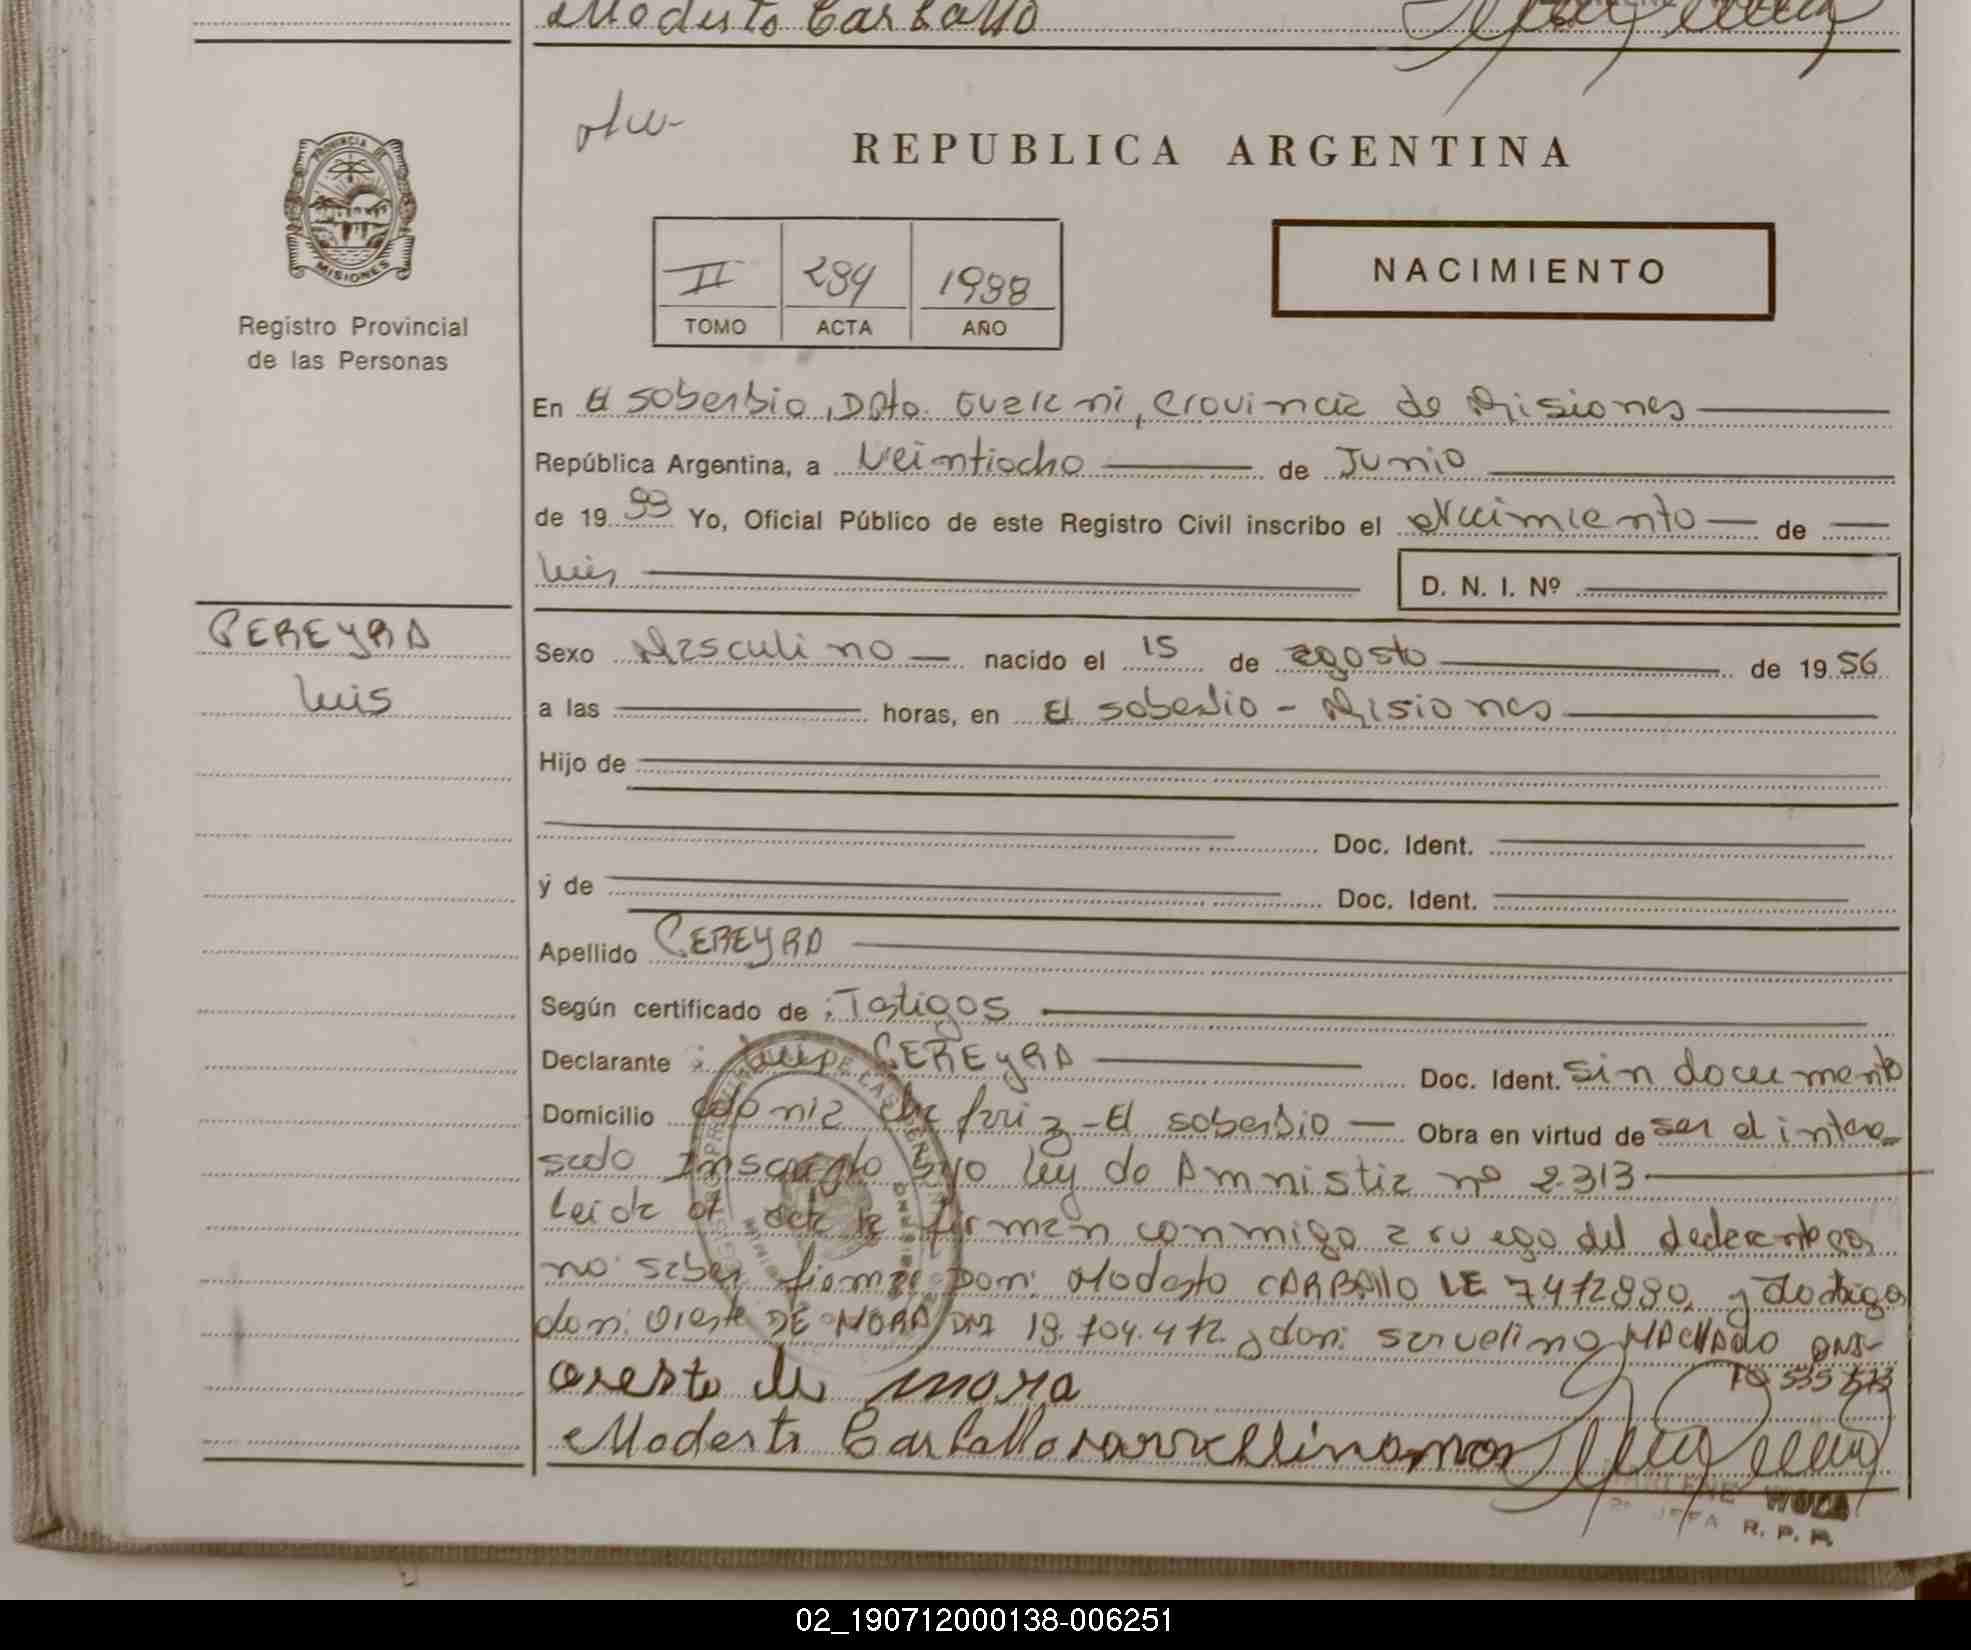 Modesto Carballo
REPUBLICA ARGENTINA
PROVINCIA DE
MISIONES
Registro Provincial
de las Personas
II 284 1988
TOMO ACTA AÑO
NACIMIENTO
En El soberbio, Dpto. Guarani, Provincia de Misiones
República Argentina, a Veintiocho de Junio
de 19 Yo, Oficial Público de este Registro Civil inscribo el Nacimiento de
Luis D. N. I. Nº
PEREYRA
Luis
Sexo Masculino nacido el 15 de agosto de 19 56
a las horas, en El soberbio - Misiones
Hijo de
Doc. Ident.
y de Doc. Ident.
Apellido PEREYRA
Según certificado de : Testigos
Declarante : Luis PEREYRA Doc. Ident. sin documento
Domicilio colonia - El soberbio Obra en virtud de ser el intere-
sado Inscripto bajo ley de Amnistia nº 2.313
Leida el acta la firman conmigo a ruego del declarante por
no saber firmar Don: Modesto CARBALLO LE 7412880 y testigos
don: Oreste DE MORA DNI 18.704.412 y don: MACHADO DNI-
oreste de mora
Modesto Carballo
MARLENE WODA
JEFA R. P. P.
02_190712000138-006251